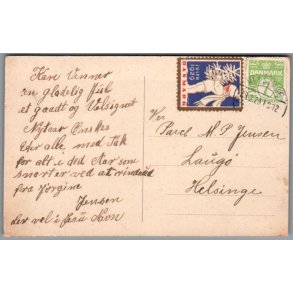 Kære Venner
en glædelig Jul
et godt og Velsignet
Nytaar Ønskes
Eder alle med Tak
for alt i det Aar som
snarter ved at
fra Jørgine
Jensen
der vel i Jesu Navn
JULEN 1929
DANMARK
DANMARK
Hr
Parcel M P Jensen
Laugø
Helsinge